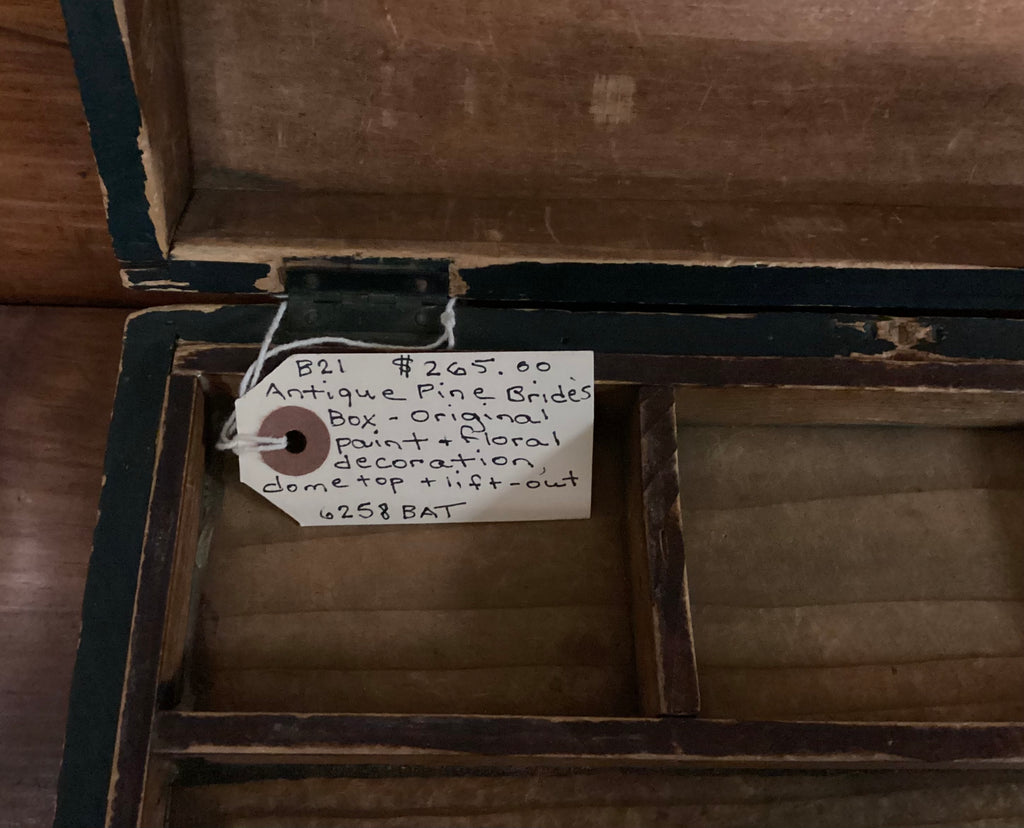 B21 $265.00
Antique Pine Bride's
Box - Original
paint + floral
decoration,
dome top + lift-out
6258 BAT